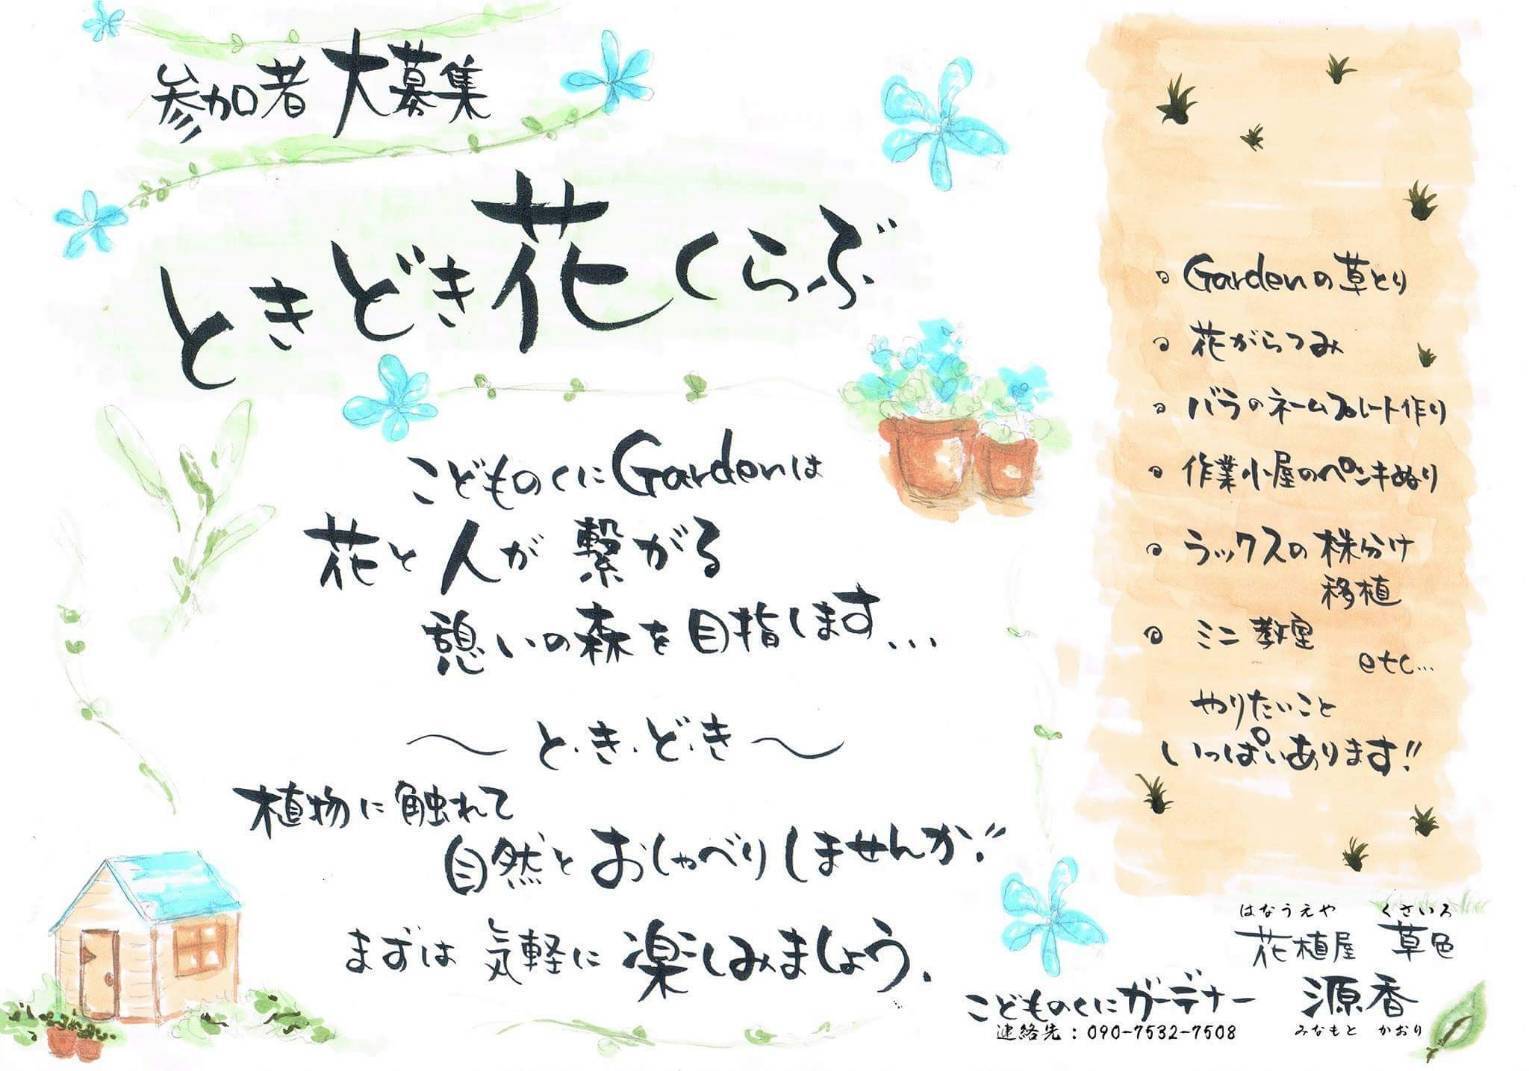 参加者 大募集
ときどき花くらぶ
こどものくにGardenは
花と人が繋がる
憩いの森を目指します...
～と・き・ど・き～
植物に触れて
自然とおしゃべりしませんか!!
まずは気軽に楽しみましょう.
Gardenの草とり
花がらつみ
バラのネームプレート作り
作業小屋のペンキぬり
ラックスの株分け
移植
ミニ教室
etc...
やりたいこと
いっぱいあります!!
はなうえや くさいろ
花植屋 草色
こどものくにガーデナー 源香
みなもと かおり
連絡先：090-7532-7508